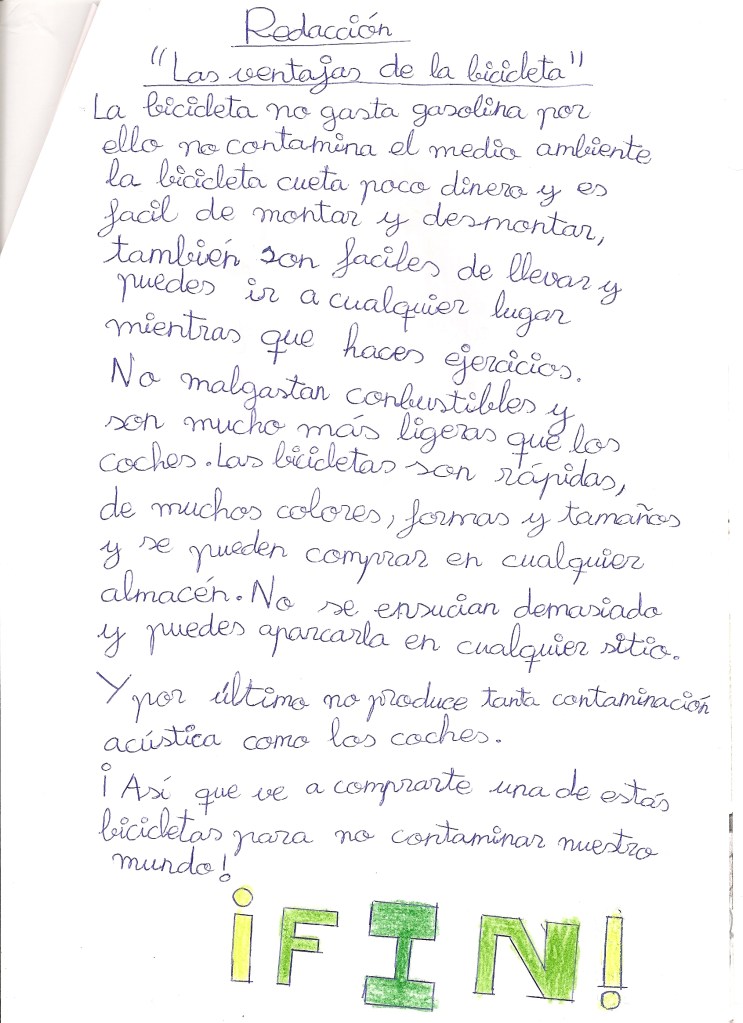 Redacción
"Las ventajas de la bicicleta"
La bicicleta no gasta gasolina por
ello no contamina el medio ambiente
la bicicleta cueta poco dinero y es
facil de montar y desmontar,
también son faciles de llevar y
puedes ir a cualquier lugar
mientras que haces ejercicios.
No malgastan conbustibles y
son mucho más ligeras que los
coches. Las bicicletas son rápidas,
de muchos colores, formas y tamaños
y se pueden comprar en cualquier
almacén. No se ensucian demasiado
y puedes aparcarla en cualquier sitio.
Y por último no produce tanta contaminación
acústica como los coches.
¡Así que ve a comprarte una de estás
bicicletas para no contaminar nuestro
mundo!
¡FIN!